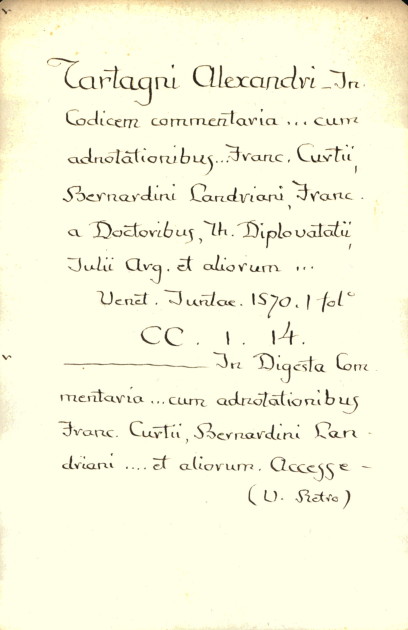 Tartagni Alexandri - In
Codicem commentaria ... cum
adnotationibus... Franc. Curtii,
Bernardini Landriani, Franc.
a Doctoribus, Th. Diplovatatii,
Julii Arg. et aliorum ...
Venet. Juntae. 1570. 1 fol°
CC. 1. 14.
——— In Digesta Com
mentaria ... cum adnotationibus
Franc. Curtii, Bernardini Lan-
driani .... et aliorum. Accesse -
(V. Retro)